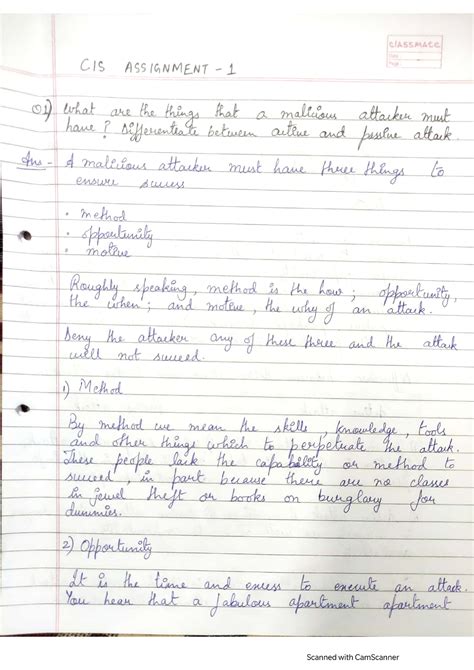 CLASSMATE
Date
Page
CIS ASSIGNMENT - 1
Q1) What are the things that a malicious attacker must
have? Differentiate between active and passive attack.
Ans - A malicious attacker must have three things to
ensure success
• method
• opportunity
• motive
Roughly speaking, method is the how; opportunity,
the when; and motive, the why of an attack.
Deny the attacker any of these three and the attack
will not succeed.
1) Method
By method we mean the skills, knowledge, tools
and other things which to perpetuate the attack.
These people lack the capability or method to
succeed, in part because there are no classes
in jewel theft or books on burglary for
dummies.
2) Opportunity
It is the time and access to execute an attack.
You hear that a fabulous apartment apartment
Scanned with CamScanner